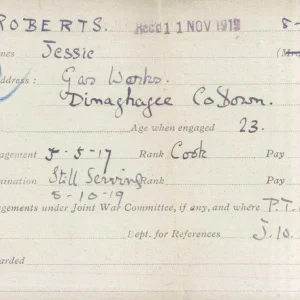 ROBERTS. Recd 11 NOV 1919
mes Jessie
ddress: Gas Works.
Dinaghagee Co Down.
Age when engaged 23.
agement 5-5-17 Rank Cook Pay
mination Still Serving Rank Pay
5-10-19
agements under Joint War Committee, if any, and where P.T.
Dept. for References J.10.
arded